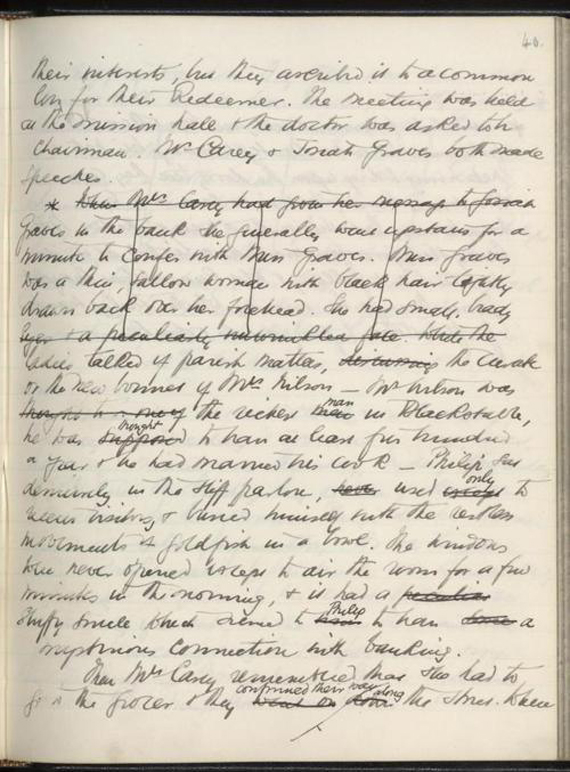 40.
their interests, but they ascribed it to a common
love for their Redeemer. The meeting was held
at the mission hall & the doctor was asked to be
chairman. Mr Carey & Josiah Graves both made
speeches.
* When Mrs Carey had given her message to Josiah
Graves in the bank she generally went upstairs for a
minute to confer with Miss Graves. Miss Graves
was a thin, sallow woman with black hair tightly
drawn back over her forehead. She had small, beady
eyes & a peculiarly unwrinkled face. While the
ladies talked of parish matters, discussing the curate
or the new bonnet of Mrs Wilson — Mr Wilson was
thought to be one of the richest men man in Blackstable,
he was supposed thought to have at least five hundred
a year & he had married his cook — Philip sat
demurely in the stiff parlour, never used except only to
receive visitors, & busied himself with the restless
movements of goldfish in a bowl. The windows
were never opened except to air the room for a few
minutes in the morning, & it had a peculiar
stuffy smell which seemed to Philip to have a
mysterious connection with banking.
Then Mrs Carey remembered that she had to
go to the grocer & they went on continued their way along the street. When